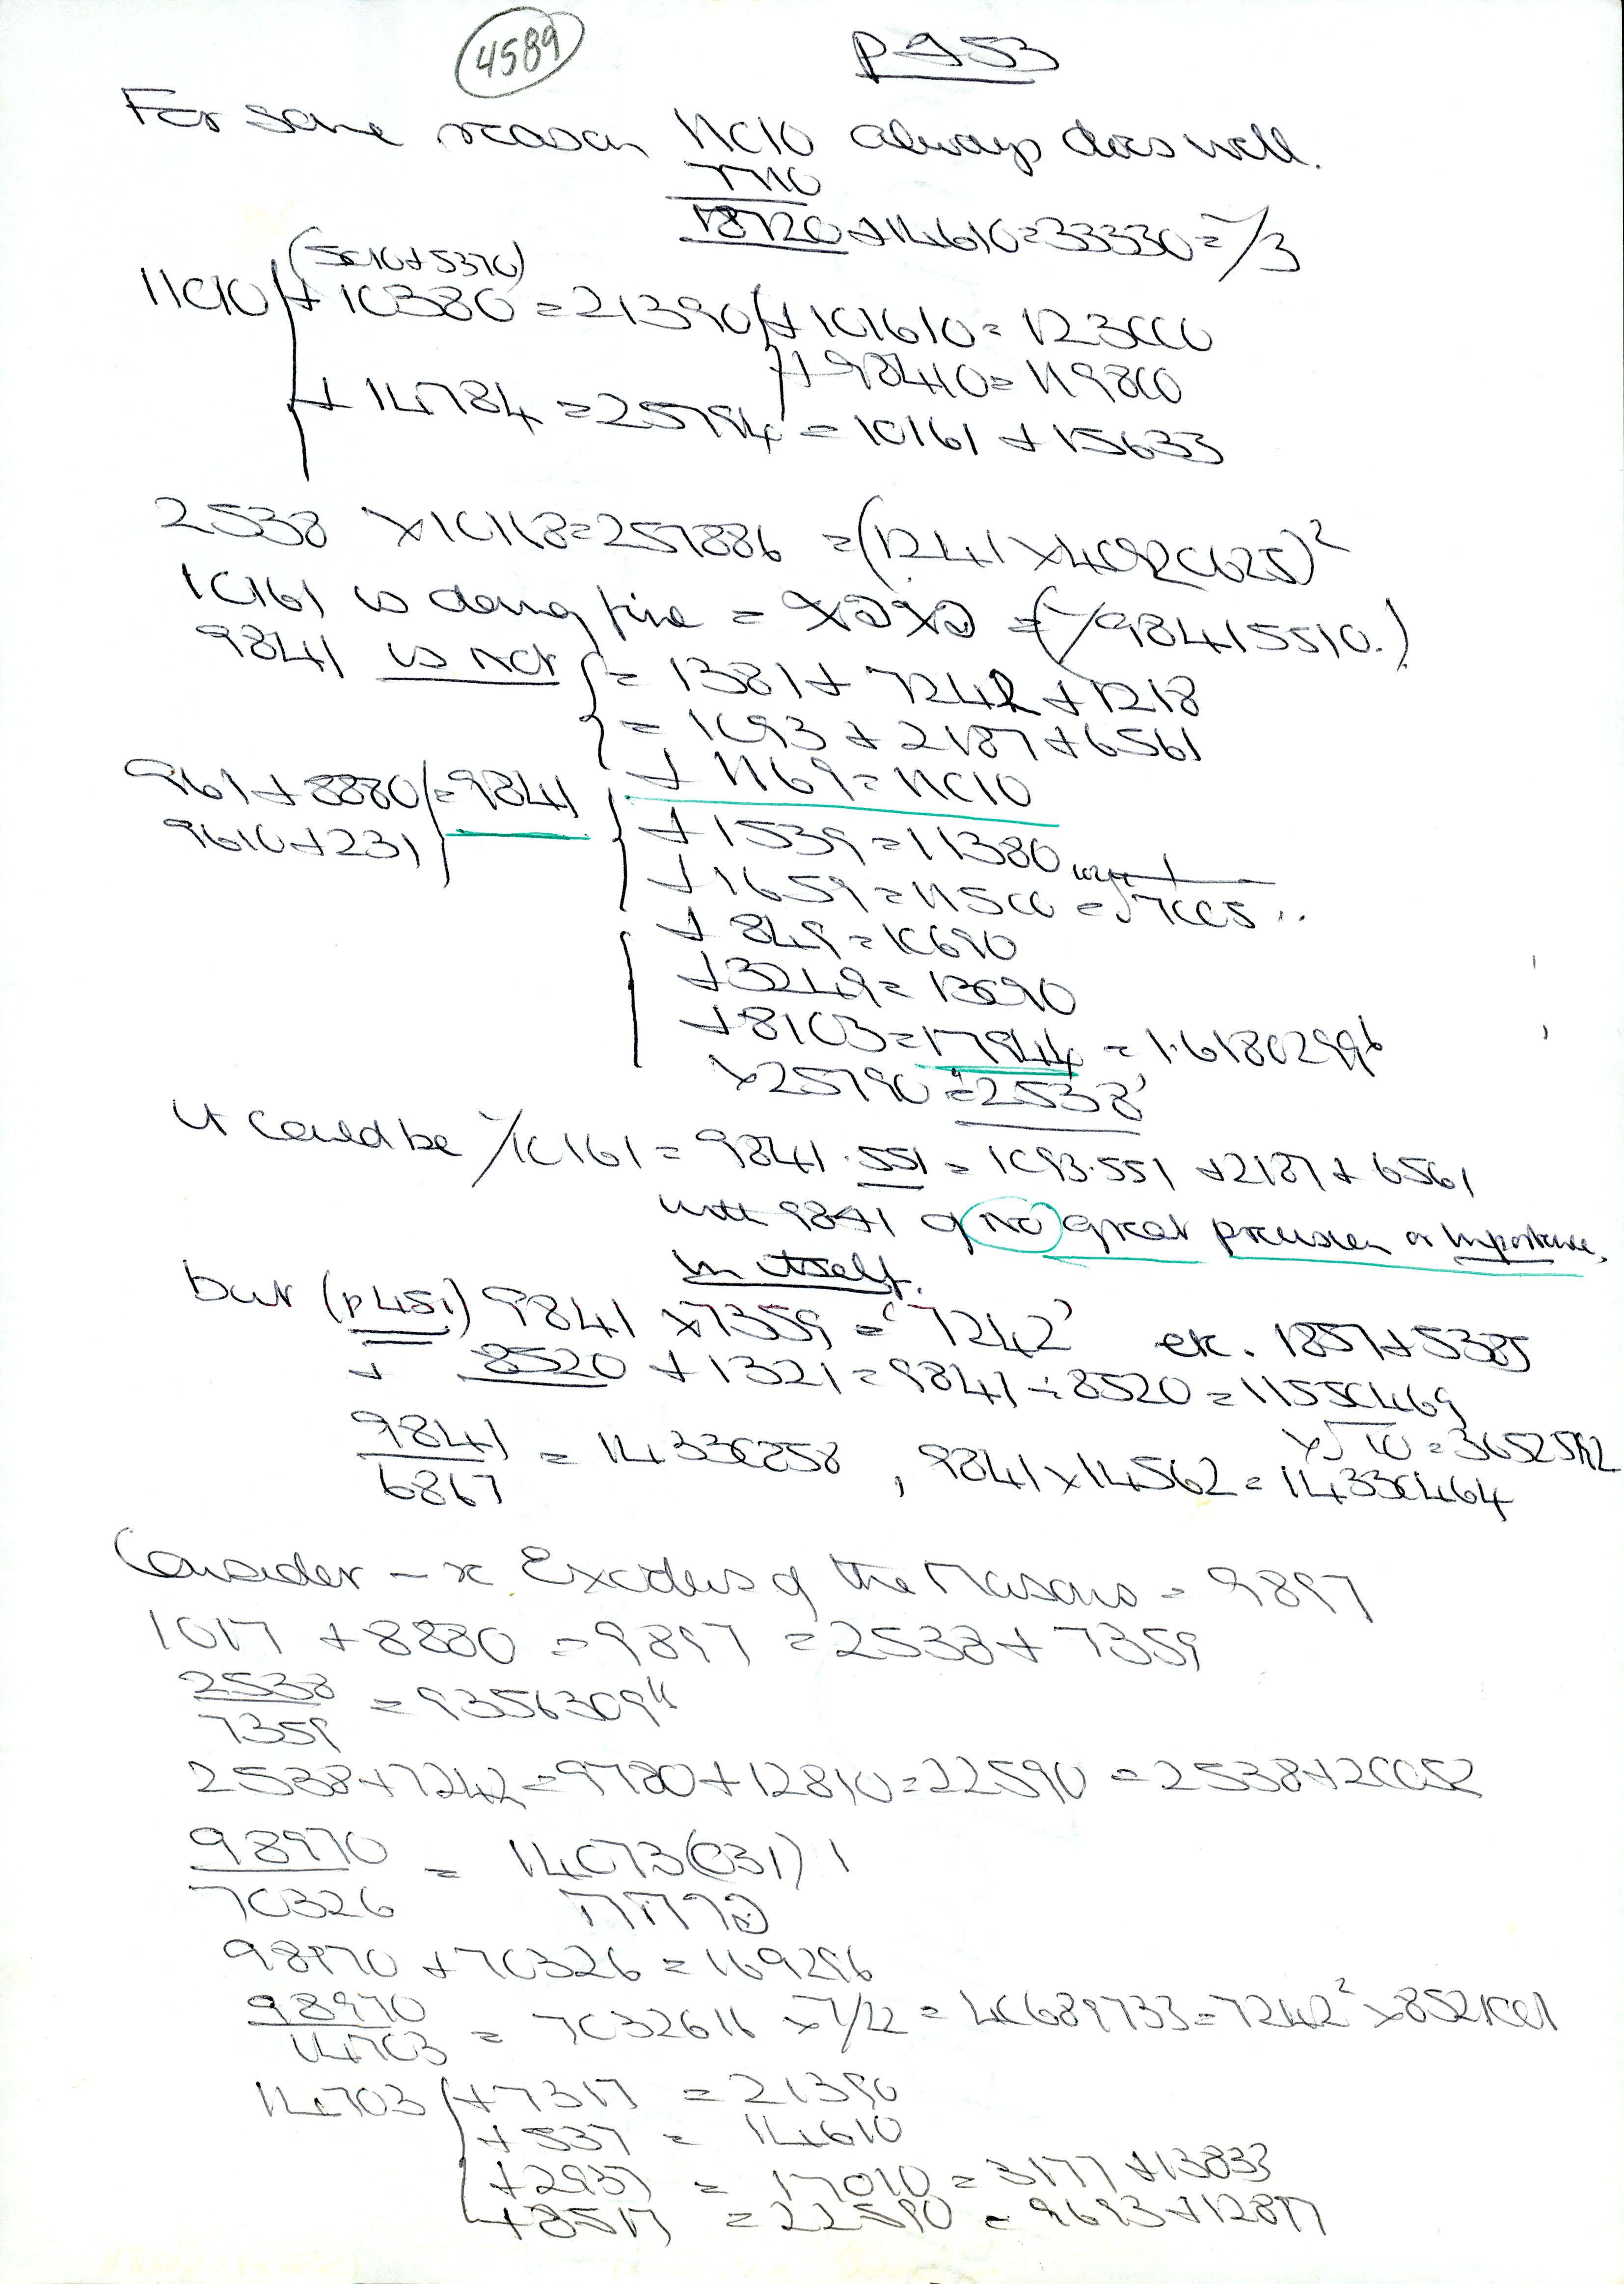 4589
p 953
For some reason 11010 always does well.
7710
18720 + 14610 = 33330 = √/3
(5010 + 5370)
11010 + 10380 = 21390 + 101610 = 123000
+ 98410 = 119800
+ 14784 = 25794 = 10161 + 15633
2538 × 10118 = 257886 = (1241 × 40920625)²
10161 is doing fine = = (√984155510.)
9841 is not = 1381 + 7242 + 1218
= 1093 + 2187 + 6561
961 + 8880 = 9841 + 1169 = 11010
9610 + 231 + 1539 = 11380
+ 1659 = 11500 = √7005 ..
+ 849 = 10690
+ 3249 = 13090
+ 8103 = 17944 = 1.61802996
× 25790 = '2538'
It could be √10161 = 9841.551 = 1093.551 + 2187 + 6561
with 9841 of NO great precision or importance,
in itself.
but (p 451) 9841 × 7359 = '7242' etc. 1857 + 5385
+ 8520 + 1321 = 9841 ÷ 8520 = 11550469
× √10 = 3652592
9841
6867 = 14330858 , 9841 × 14562 = 14330464
Consider – x Exodus of the Masons = 9897
1017 + 8880 = 9897 = 2538 + 7359
2538
7359 = 9356309"
2538 + 7242 = 9780 + 12810 = 22590 = 2538 + 20052
98970
70326 = 14073(031) 1
98970 + 70326 = 169296
98970
14703 = 7032611 × 7/22 = 40689733 = 7242² × 8521001
14703 + 7317 = 21390
+ 537 = 14610
+ 2937 = 17010 = 3177 + 13833
+ 8517 = 22590 = 9693 + 12897